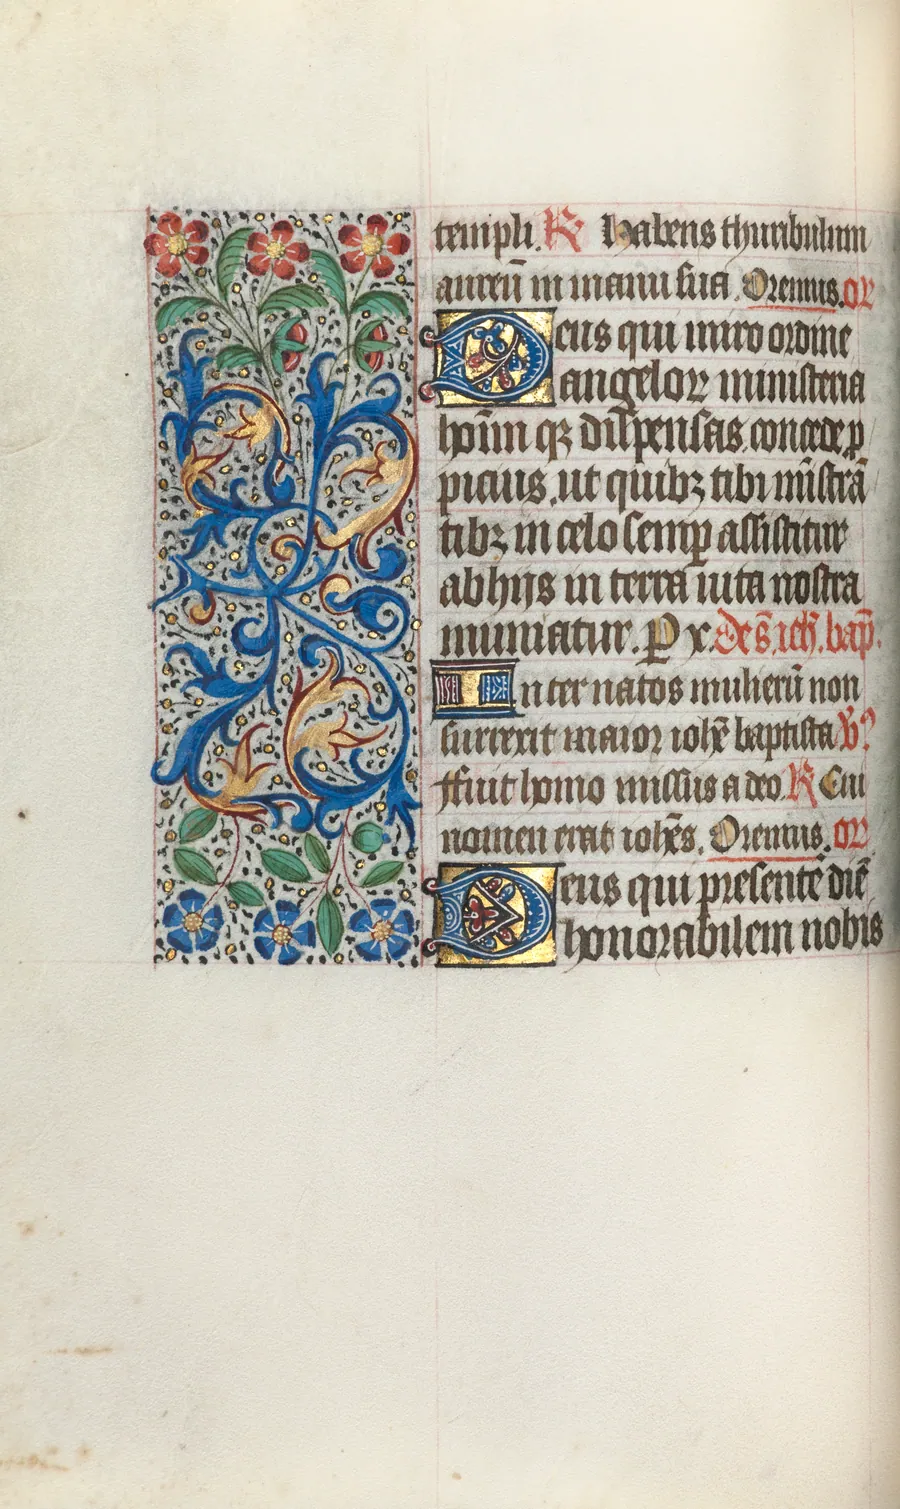 templi. R Habens thuribulum
aureũ in manu sua. Oremus. or
Deus qui miro ordine
angeloꝝ ministeria
hoĩm qꝫ dispensas. concede ꝓ
picius. ut quibꝫ tibi mĩstrã
tibꝫ in celo semꝑ assistitur
ab hijs in terra uita nostra
muniatur. Ꝑ x. De s̃. ioh̃. bap̃.
Inter natos mulierũ non
surrexit maior ioh̃e baptista v̾
ffuit homo missus a deo. R Cui
nomen erat ioh̃es. Oremus. or
Deus qui presentẽ diẽ
honorabilem nobis